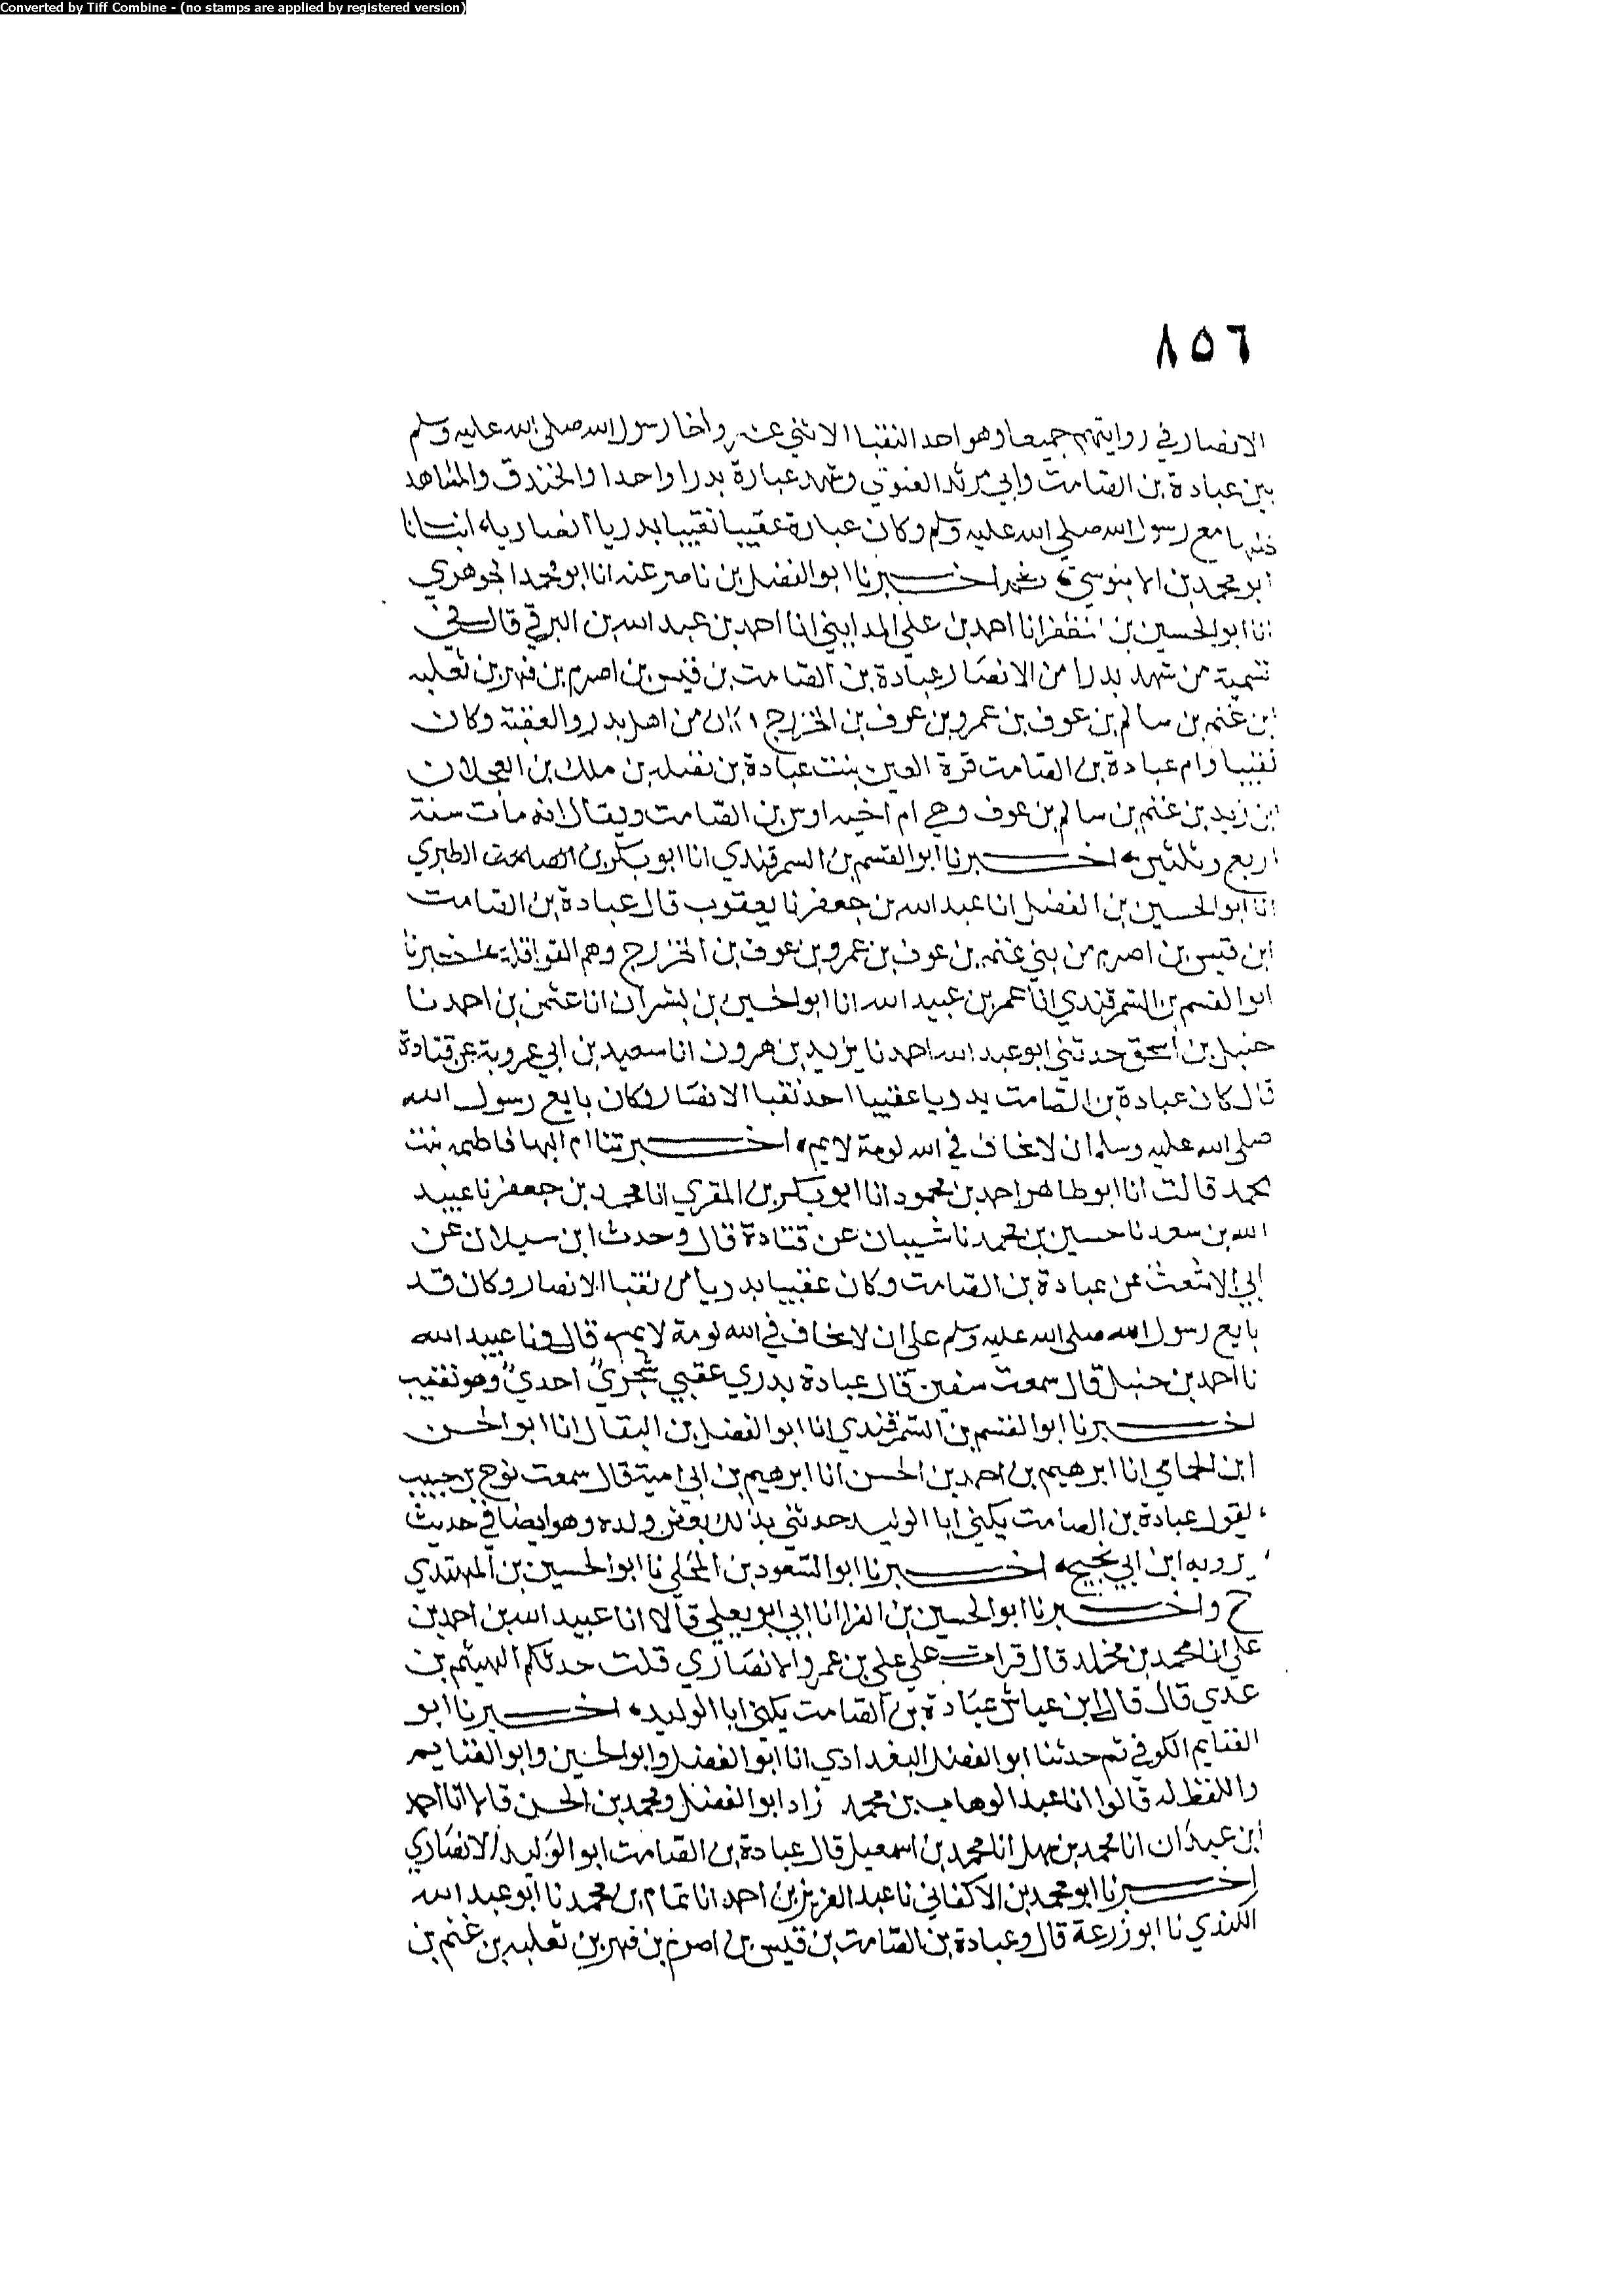 Converted by Tiff Combine - (no stamps are applied by registered version)
٨٥٦
الانصار في روايتهم جميعا وهو احد النقبا الاثني عشر واخا رسول الله صلى الله عليه وسلم
بين عبادة بن الصامت وابي مرثد الغنوي وشهد عبادة بدرا واحدا والخندق والمشاهد
كلها مع رسول الله صلى الله عليه وسلم وكان عبادة عقبيا نقيبا بدريا انصاريا، انبانا
ابو محمد بن الابنوسي، ثم اخبرنا ابو الفضل بن ناصر عنه انا ابو محمد الجوهري
انا ابو الحسين بن المظفر انا احمد بن علي المدايني انا احمد بن عبد الله بن البرقي قال في
تسمية من شهد بدرا من الانصار عبادة بن الصامت بن قيس بن اصرم بن فهر بن ثعلبه
ابن غنم بن سالم بن عوف بن عمرو بن عوف بن الخزرج، كان من اهل بدر والعقبة وكان
نقيبا وام عبادة بن الصامت قرة العين بنت عبادة بن نضله بن ملك بن العجلان
ابن زيد بن غنم بن سالم بن عوف وهي ام اخيه اوس بن الصامت ويقال انه مات سنة
اربع وثلثين، اخبرنا ابو القسم بن السمرقندي انا ابو بكر بن الطبري
انا ابو الحسين بن الفضل انا عبد الله بن جعفر نا يعقوب قال عبادة بن الصامت
ابن قيس بن اصرم من بني غنم بن عوف بن عمرو بن عوف بن الخزرج وهم القواقلة اخبرنا
ابو القسم بن السمرقندي انا عمر بن عبيد الله انا ابو الحسين بن بشران انا عثمن بن احمد نا
حنبل بن اسحق حدثني ابو عبد الله احمد نا يزيد بن هرون انا سعيد بن ابي عروبة عن قتادة
قال كان عبادة بن الصامت بدريا عقبيا احد نقبا الانصار وكان بايع رسول الله
صلى الله عليه وسلم ان لا يخاف في الله لومة لايم، اخبرتنا ام البها فاطمه بنت
محمد قالت انا ابو طاهر احمد بن محمود انا ابو بكر بن المقري انا محمد بن جعفر نا عبيد
الله بن سعد نا حسين بن محمد نا شيبان عن قتادة قال وحدث ابن سيلان عن
ابي الاشعث عن عبادة بن الصامت وكان عقبيا بدريا من نقبا الانصار وكان قد
بايع رسول الله صلى الله عليه وسلم على ان لا يخاف في الله لومة لايم، قال ونا عبيد الله
نا احمد بن حنبل قال سمعت سفين قال عبادة بدري عقبي شجري احدي وهو نقيب
اخبرنا ابو القسم بن السمرقندي انا ابو الفضل بن البقال انا ابو الحسن
ابن الحمامي انا ابرهيم بن احمد بن الحسن انا ابرهيم بن ابي امية قال سمعت نوح بن حبيب
يقول عبادة بن الصامت يكنى ابا الوليد حدثني بذلك بعض ولده وهو ايضا في حديث
يرويه ابن ابي نجيح، اخبرنا ابو السعود بن المجلي نا ابو الحسين بن المهتدي
ح واخبرنا ابو الحسين بن الفرا انا ابي ابو يعلى قالا انا عبيد الله بن احمد بن
علي انا محمد بن مخلد قال قرات على علي بن عمرو الانصاري قلت حدثكم الهيثم بن
عدي قال قال ابن عياش عبادة بن الصامت يكنى ابا الوليد، اخبرنا ابو
الغنايم الكوفي ثم حدثنا ابو الفضل البغدادي انا ابو الفضل وابو الحسين وابو الغنايم
واللفظ له قالوا انا عبد الوهاب بن محمد زاد ابو الفضل ومحمد بن الحسن قالا انا احمد
ابن عبدان انا محمد بن سهل انا محمد بن اسمعيل قال عبادة بن الصامت ابو الوليد الانصاري
اخبرنا ابو محمد بن الاكفاني نا عبد العزيز بن احمد انا تمام بن محمد نا ابو عبد الله
الكندي نا ابو زرعة قال وعبادة بن الصامت بن قيس بن اصرم بن فهر بن ثعلبه بن غنم بن